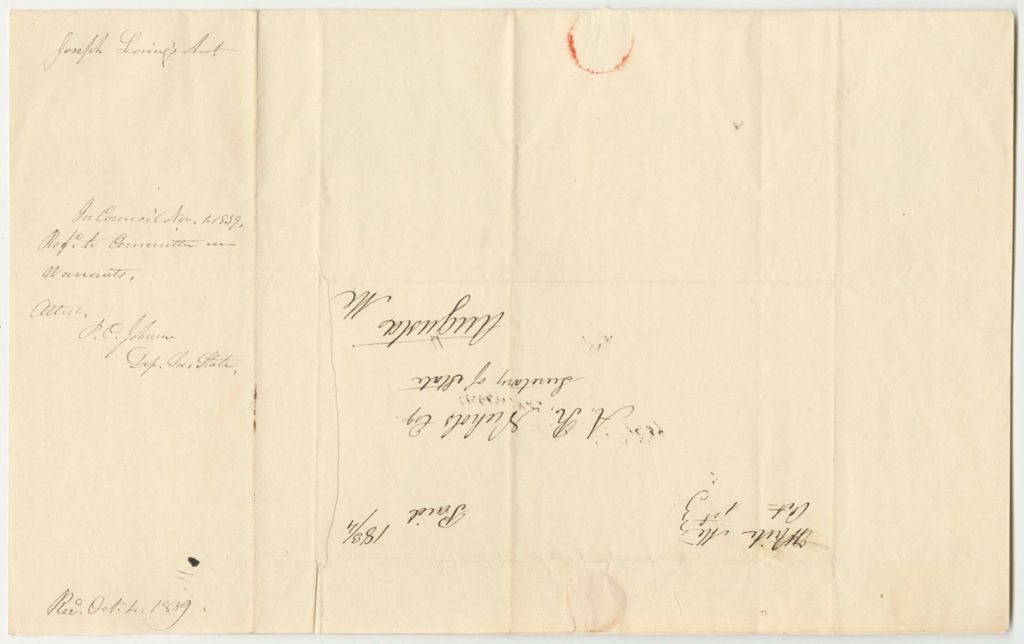 Joseph Loring's Acct
In Council Nov. 1. 1839.
Refd. to Committee on
Warrants.
Attest,
P. C. Johnson
Dep. Sec. State.
Recd. Oct. 4. 1839.
Paid
A. R. Nichols Esq
Secretary of State
Augusta
Me
Oct 1st